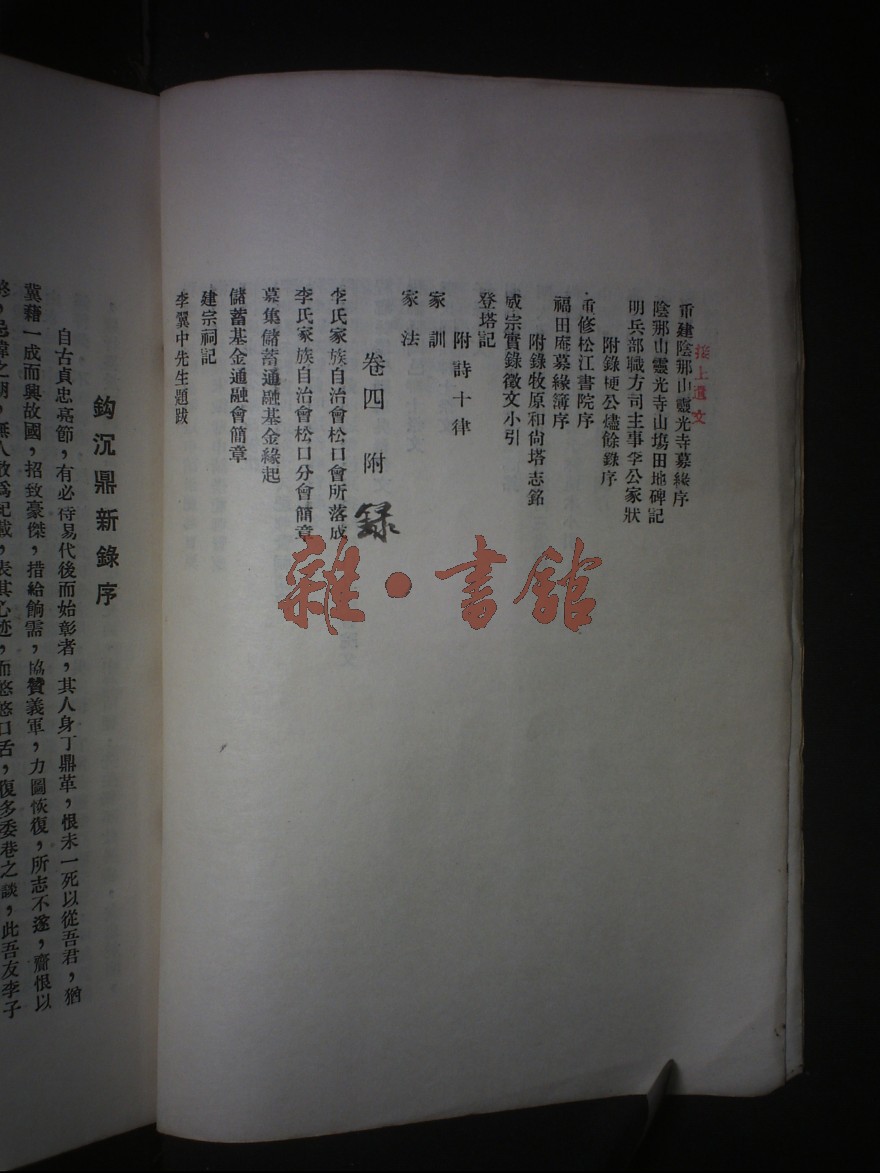 接上遺文
重建陰那山靈光寺募緣序
陰那山靈光寺山塲田地碑記
明兵部職方司主事李公家狀
附錄梗公燼餘錄序
重修松江書院序
福田庵募緣簿序
附錄牧原和尚塔志銘
威宗實錄徵文小引
登塔記
附詩十律
家訓
家法
卷四附錄
李氏家族自治會松口會所落成
李氏家族自治會松口分會簡章
募集儲蓄通融基金緣起
儲蓄基金通融會簡章
建宗祠記
李翼中先生題跋
雜·書館
鈎沉鼎新錄序
自古貞忠亮節，有必待易代後而始彰者，其人身丁鼎革，恨未一死以從吾君，猶
冀藉一成而興故國，招致豪傑，措給餉需，協贊義軍，力圖恢復，所志不遂，齎恨以
無人敢爲記載，表其心迹，而悠悠口舌，復多委巷之談，此吾友李子